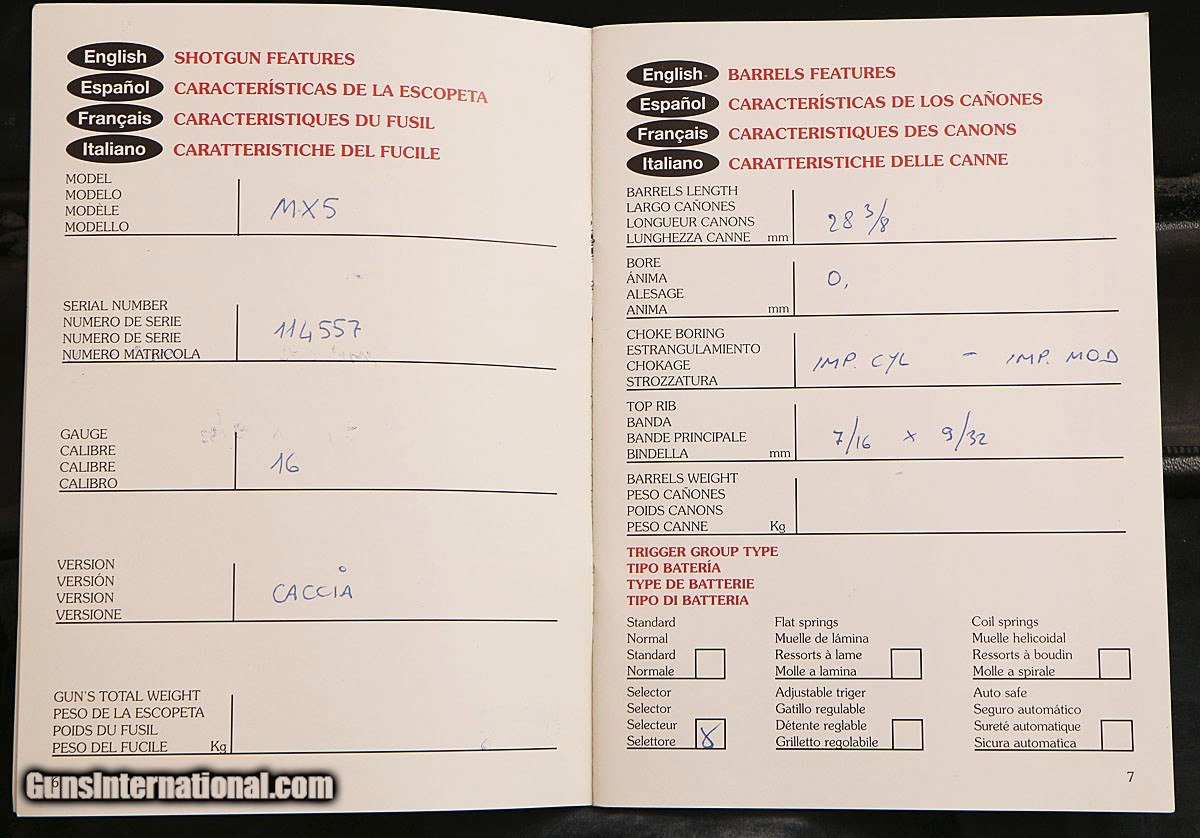 English SHOTGUN FEATURES
Español CARACTERÍSTICAS DE LA ESCOPETA
Français CARACTERISTIQUES DU FUSIL
Italiano CARATTERISTICHE DEL FUCILE
MODEL
MODELO
MODÈLE
MODELLO
MX5
SERIAL NUMBER
NUMERO DE SERIE
NUMERO DE SERIE
NUMERO MATRICOLA
114557
GAUGE
CALIBRE
CALIBRE
CALIBRO
16
VERSION
VERSIÓN
VERSION
VERSIONE
CACCIA
GUN'S TOTAL WEIGHT
PESO DE LA ESCOPETA
POIDS DU FUSIL
PESO DEL FUCILE Kg
6
GunsInternational.com
English BARRELS FEATURES
Español CARACTERÍSTICAS DE LOS CAÑONES
Français CARACTERISTIQUES DES CANONS
Italiano CARATTERISTICHE DELLE CANNE
BARRELS LENGTH
LARGO CAÑONES
LONGUEUR CANONS
LUNGHEZZA CANNE mm
28 3/8
BORE
ÁNIMA
ALESAGE
ANIMA mm
0,
CHOKE BORING
ESTRANGULAMIENTO
CHOKAGE
STROZZATURA
IMP. CYL - IMP. MOD
TOP RIB
BANDA
BANDE PRINCIPALE
BINDELLA mm
7/16 x 9/32
BARRELS WEIGHT
PESO CAÑONES
POIDS CANONS
PESO CANNE Kg
TRIGGER GROUP TYPE
TIPO BATERÍA
TYPE DE BATTERIE
TIPO DI BATTERIA
Standard
Normal
Standard
Normale
Flat springs
Muelle de lámina
Ressorts à lame
Molle a lamina
Coil springs
Muelle helicoidal
Ressorts à boudin
Molle a spirale
Selector
Selector
Selecteur
Selettore
Adjustable triger
Gatillo regulable
Détente reglable
Grilletto regolabile
Auto safe
Seguro automático
Sureté automatique
Sicura automatica
7